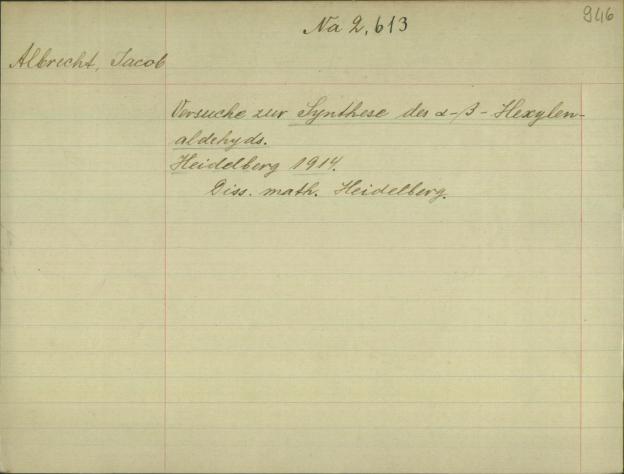 946
Na 2,613
Albrecht, Jacob
Versuche zur Synthese des α-β-Hexylen-
aldehyds.
Heidelberg 1914.
Diss. math. Heidelberg.